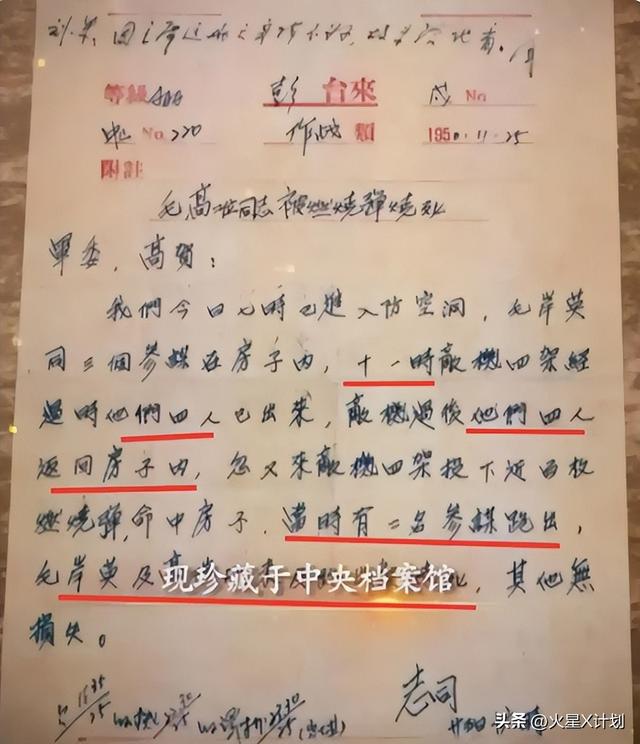 等級AAA 彭 台來 戌 No
No.220 作战 類 1950.11.25
附註
同志被燃燒彈燒死
軍委，高賀：
我們今日七時已進入防空洞，毛岸英
同三個參謀在房子内，十一時敵機四架經
過時他們四人已出來，敵機過後他們四人
返回房子内，忽又來敵機四架投下近百枚
燃燒彈，命中房子，當時有二名參謀跑出，
毛岸英及高 死，其他無
现珍藏于中央档案馆
損失。
志司
头条 @火星X计划